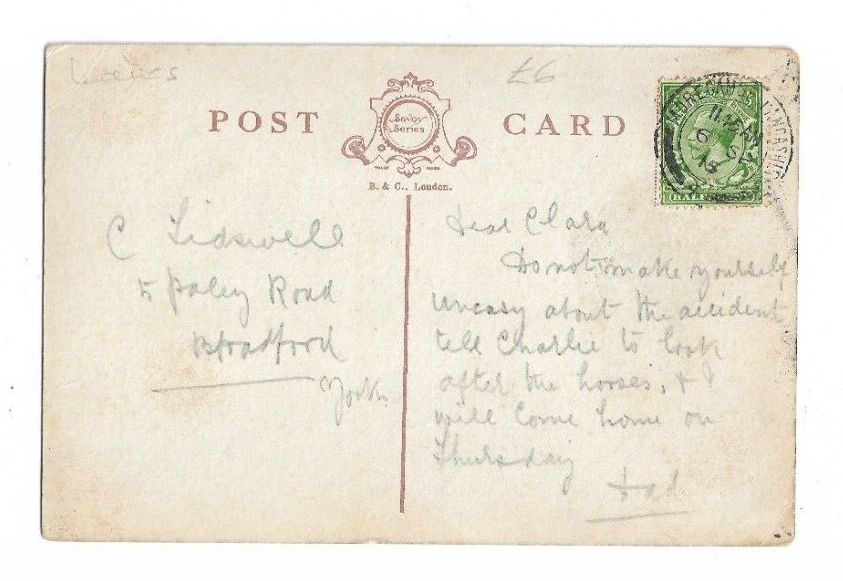 Lancs
£6
POST CARD
Savoy
Series
TRADE MARK
B. & C., London.
11.15 AM
6
18
HALF
C Lidswell
5 Paley Road
Bradford
Yorks
Dear Clara
Do not make yourself
uneasy about the accident
tell Charlie to look
after the horses, & I
will come home on
Thursday
Dad